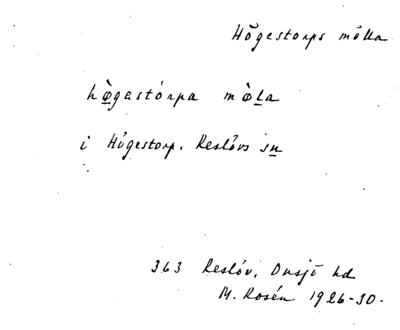 Högestorps mölla
hø̀gastórpa mø̀la
i Högestorp. Reslövs sn
363 Reslöv, Onsjö hd
M. Rosén 1926-30.